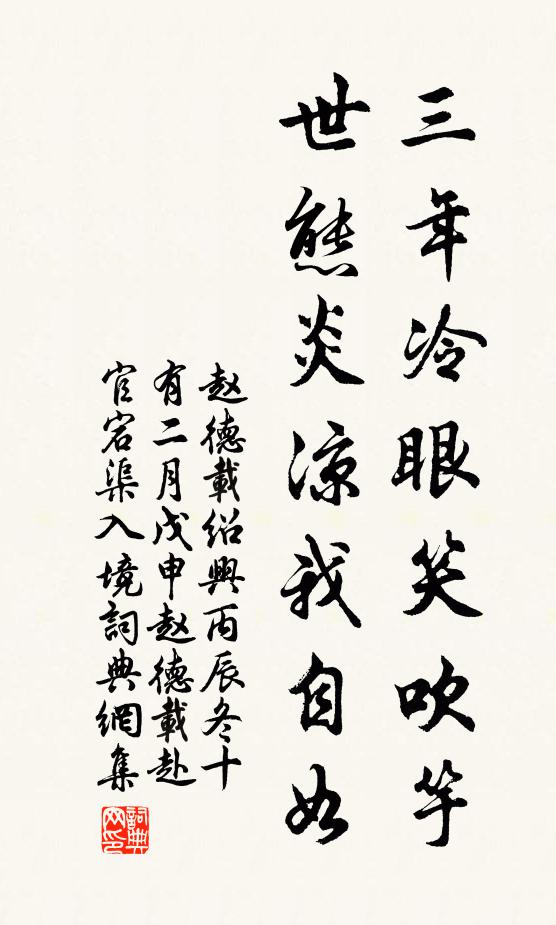 三年冷眼笑吹竽
世態炎涼我自如
赵德載紹興丙辰冬十
有二月戊申赵德載赴
官宕渠入境詞典網集
詞典网印